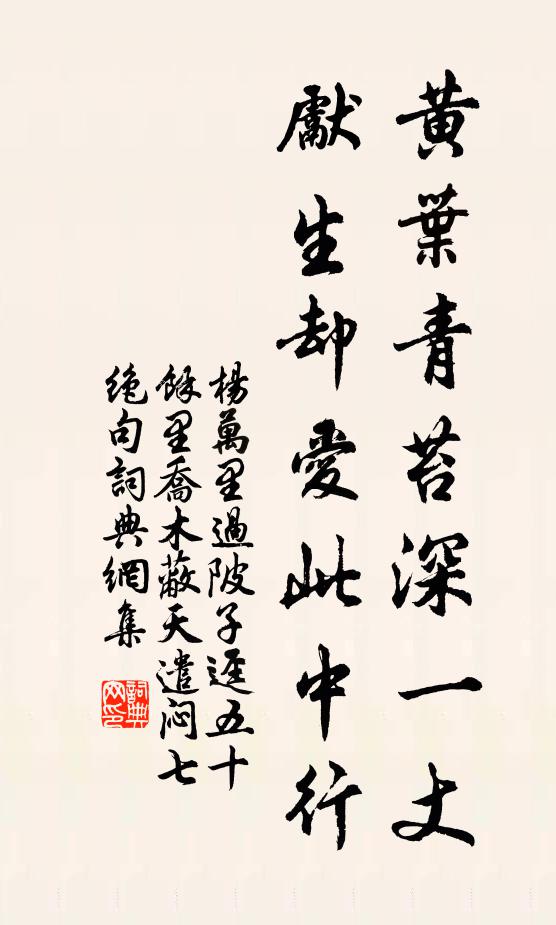 黄葉青苔深一丈
獻生却愛此中行
楊萬里過陂子逕五十
餘里喬木蔽天遣悶七
絕句詞典網集
詞典
网印